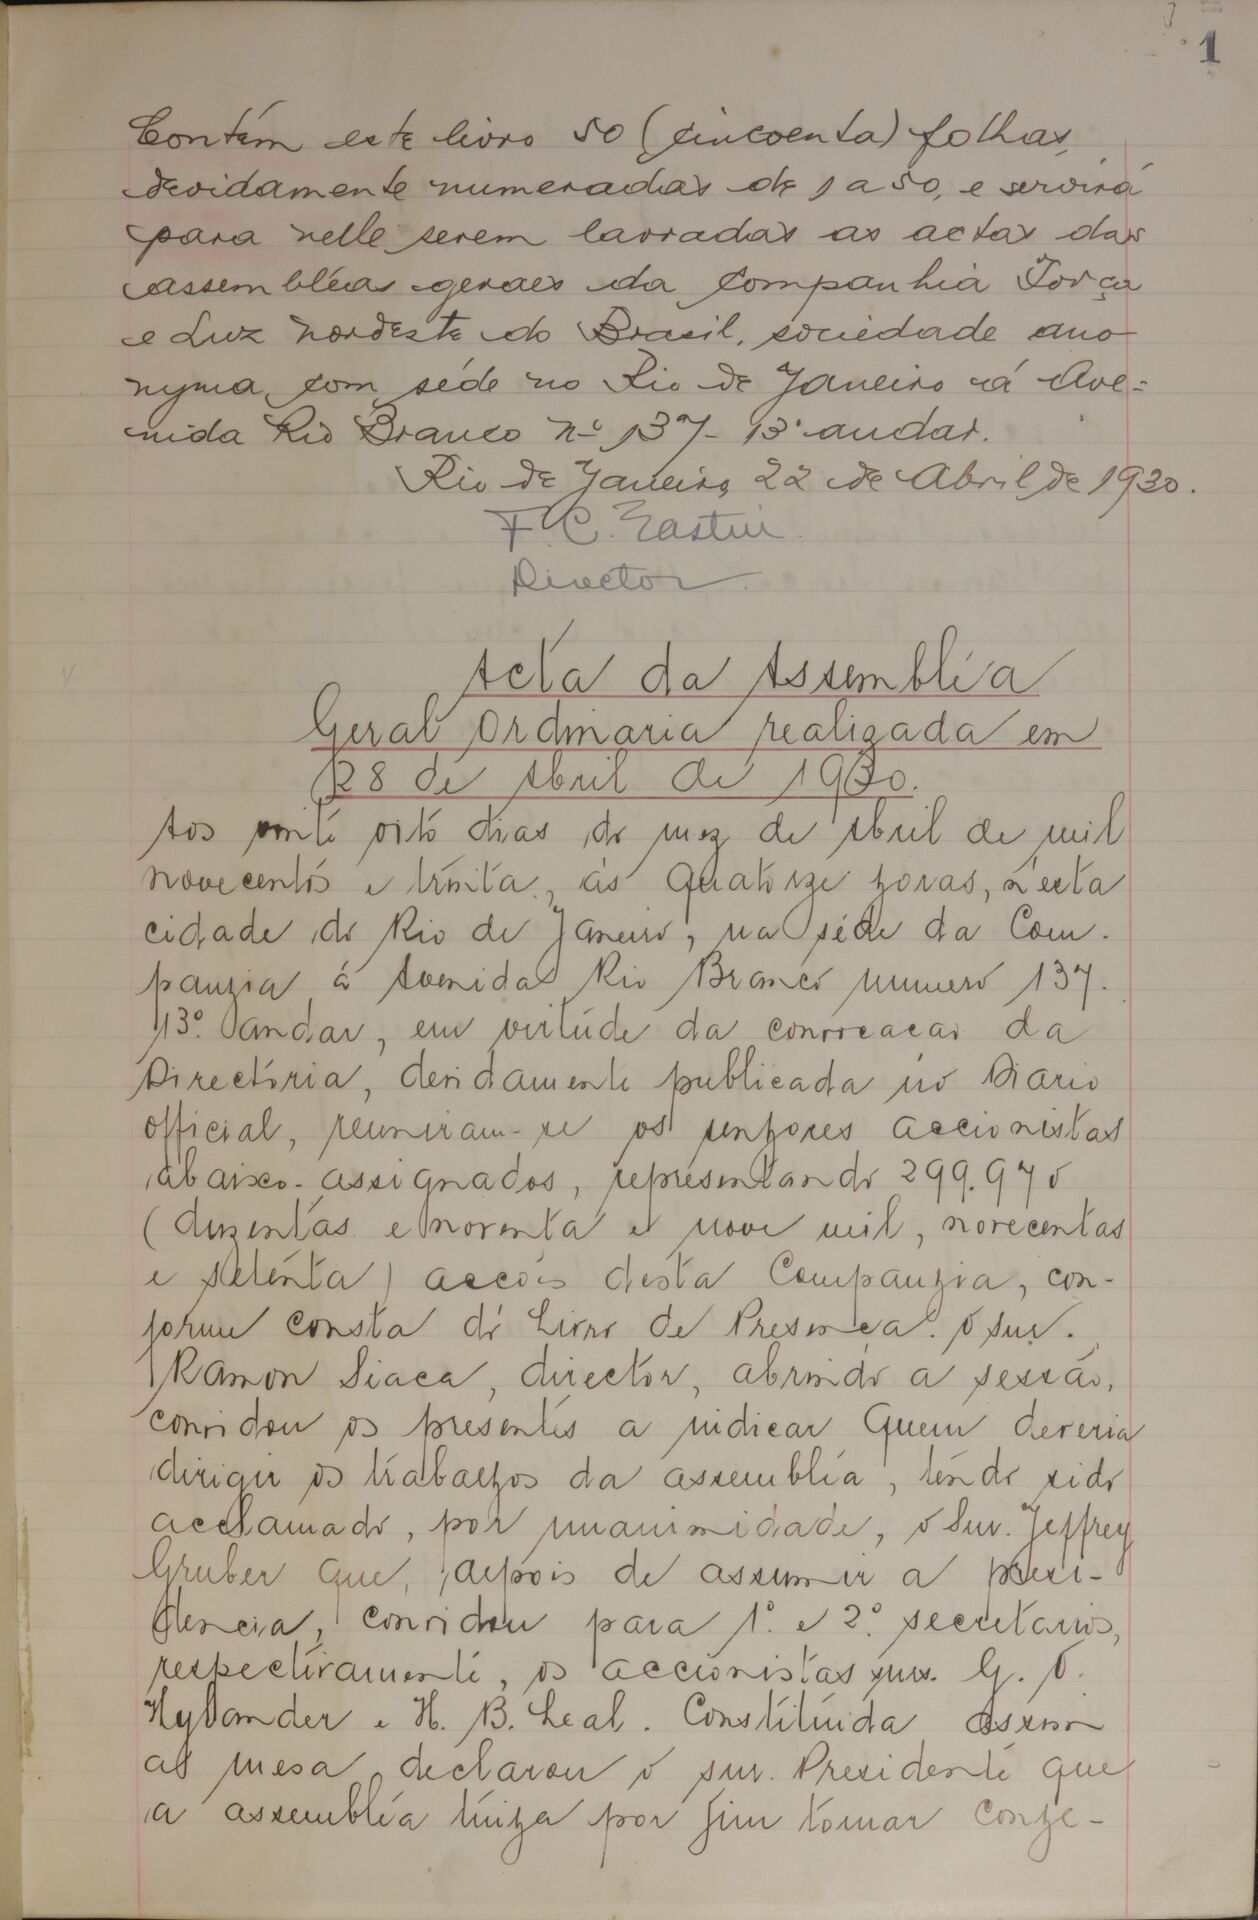 1
Contém este livro 50 (cincoenta) folhas,
devidamente numeradas de 1 a 50, e servirá
para nelle serem lavradas as actas das
assembléas geraes da Companhia Força
e Luz Nordeste do Brasil, sociedade ano
nyma, com séde no Rio de Janeiro á Ave-
nida Rio Branco nº 137- 13º andar.
Rio de Janeiro, 22 de Abril de 1930.
F. C. Eastin.
Director.
Acta da Assembléa
Geral Ordinaria realizada em
28 de Abril de 1930.
Aos vinte oito dias do mez de Abril de mil
novecentos e trinta, ás quatorze horas, n'esta
cidade do Rio de Janeiro, na séde da Com-
panhia á Avenida Rio Branco numero 137-
13º. andar, em virtude da convocacao da
Directoria, devidamente publicada no Diario
Official, reuniram-se os senhores accionistas
abaixo-assignados, representando 299.970
(duzentas e noventa e nove mil, novecentas
e setenta) accoes desta Companhia, con-
forme consta do Livro de Presenca. O snr.
Ramon Siaca, director, abrindo a sessão,
convidou os presentes a indicar quem deveria
dirigir os trabalhos da assembléa, tendo sido
acclamado, por unanimidade, o Snr. Jeffrey
Gruber que, depois de assumir a presi-
dencia, convidou para 1º. e 2º. secretarios,
respectivamente, os accionistas snrs. G. O.
Hylander e H. B. Leal. Constituida assim
as mesa, declarou o snr. Presidente que
a assembléa tinha por fim tomar conhe-